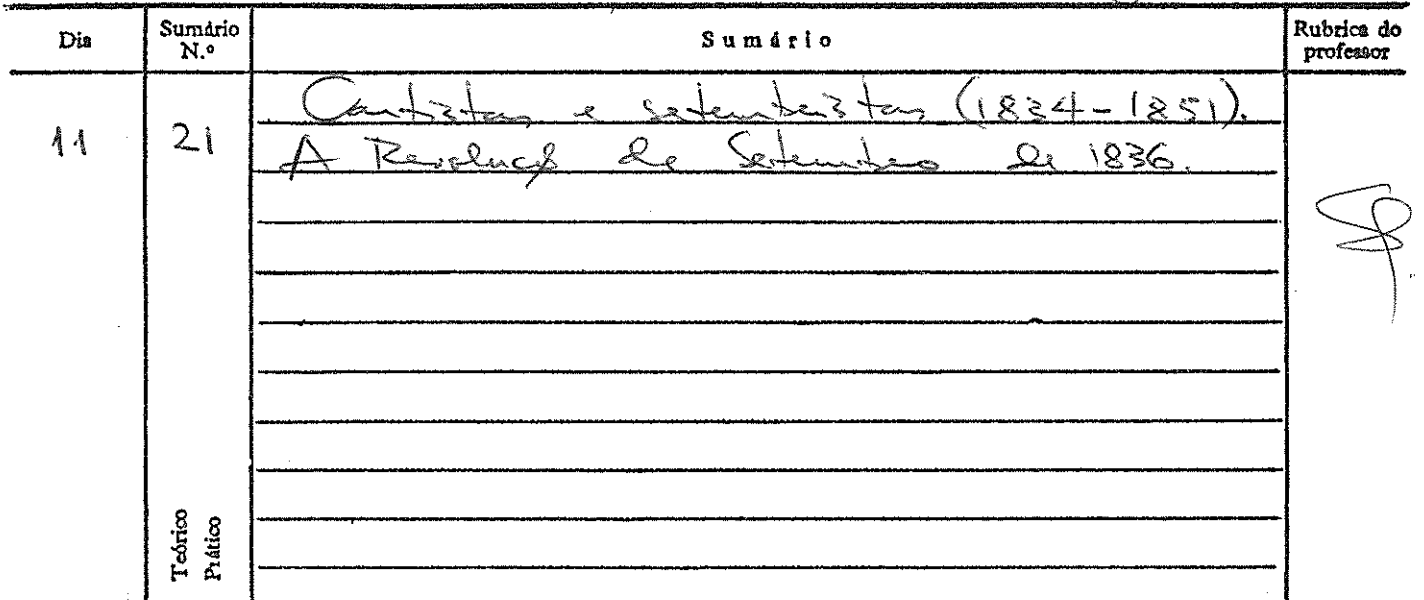 Dia
Sumário N.º
Sumário
Rubrica do professor
11
21
Cartistas e setembristas (1834-1851).
A Revolução de Setembro de 1836.
Teórico
Prático